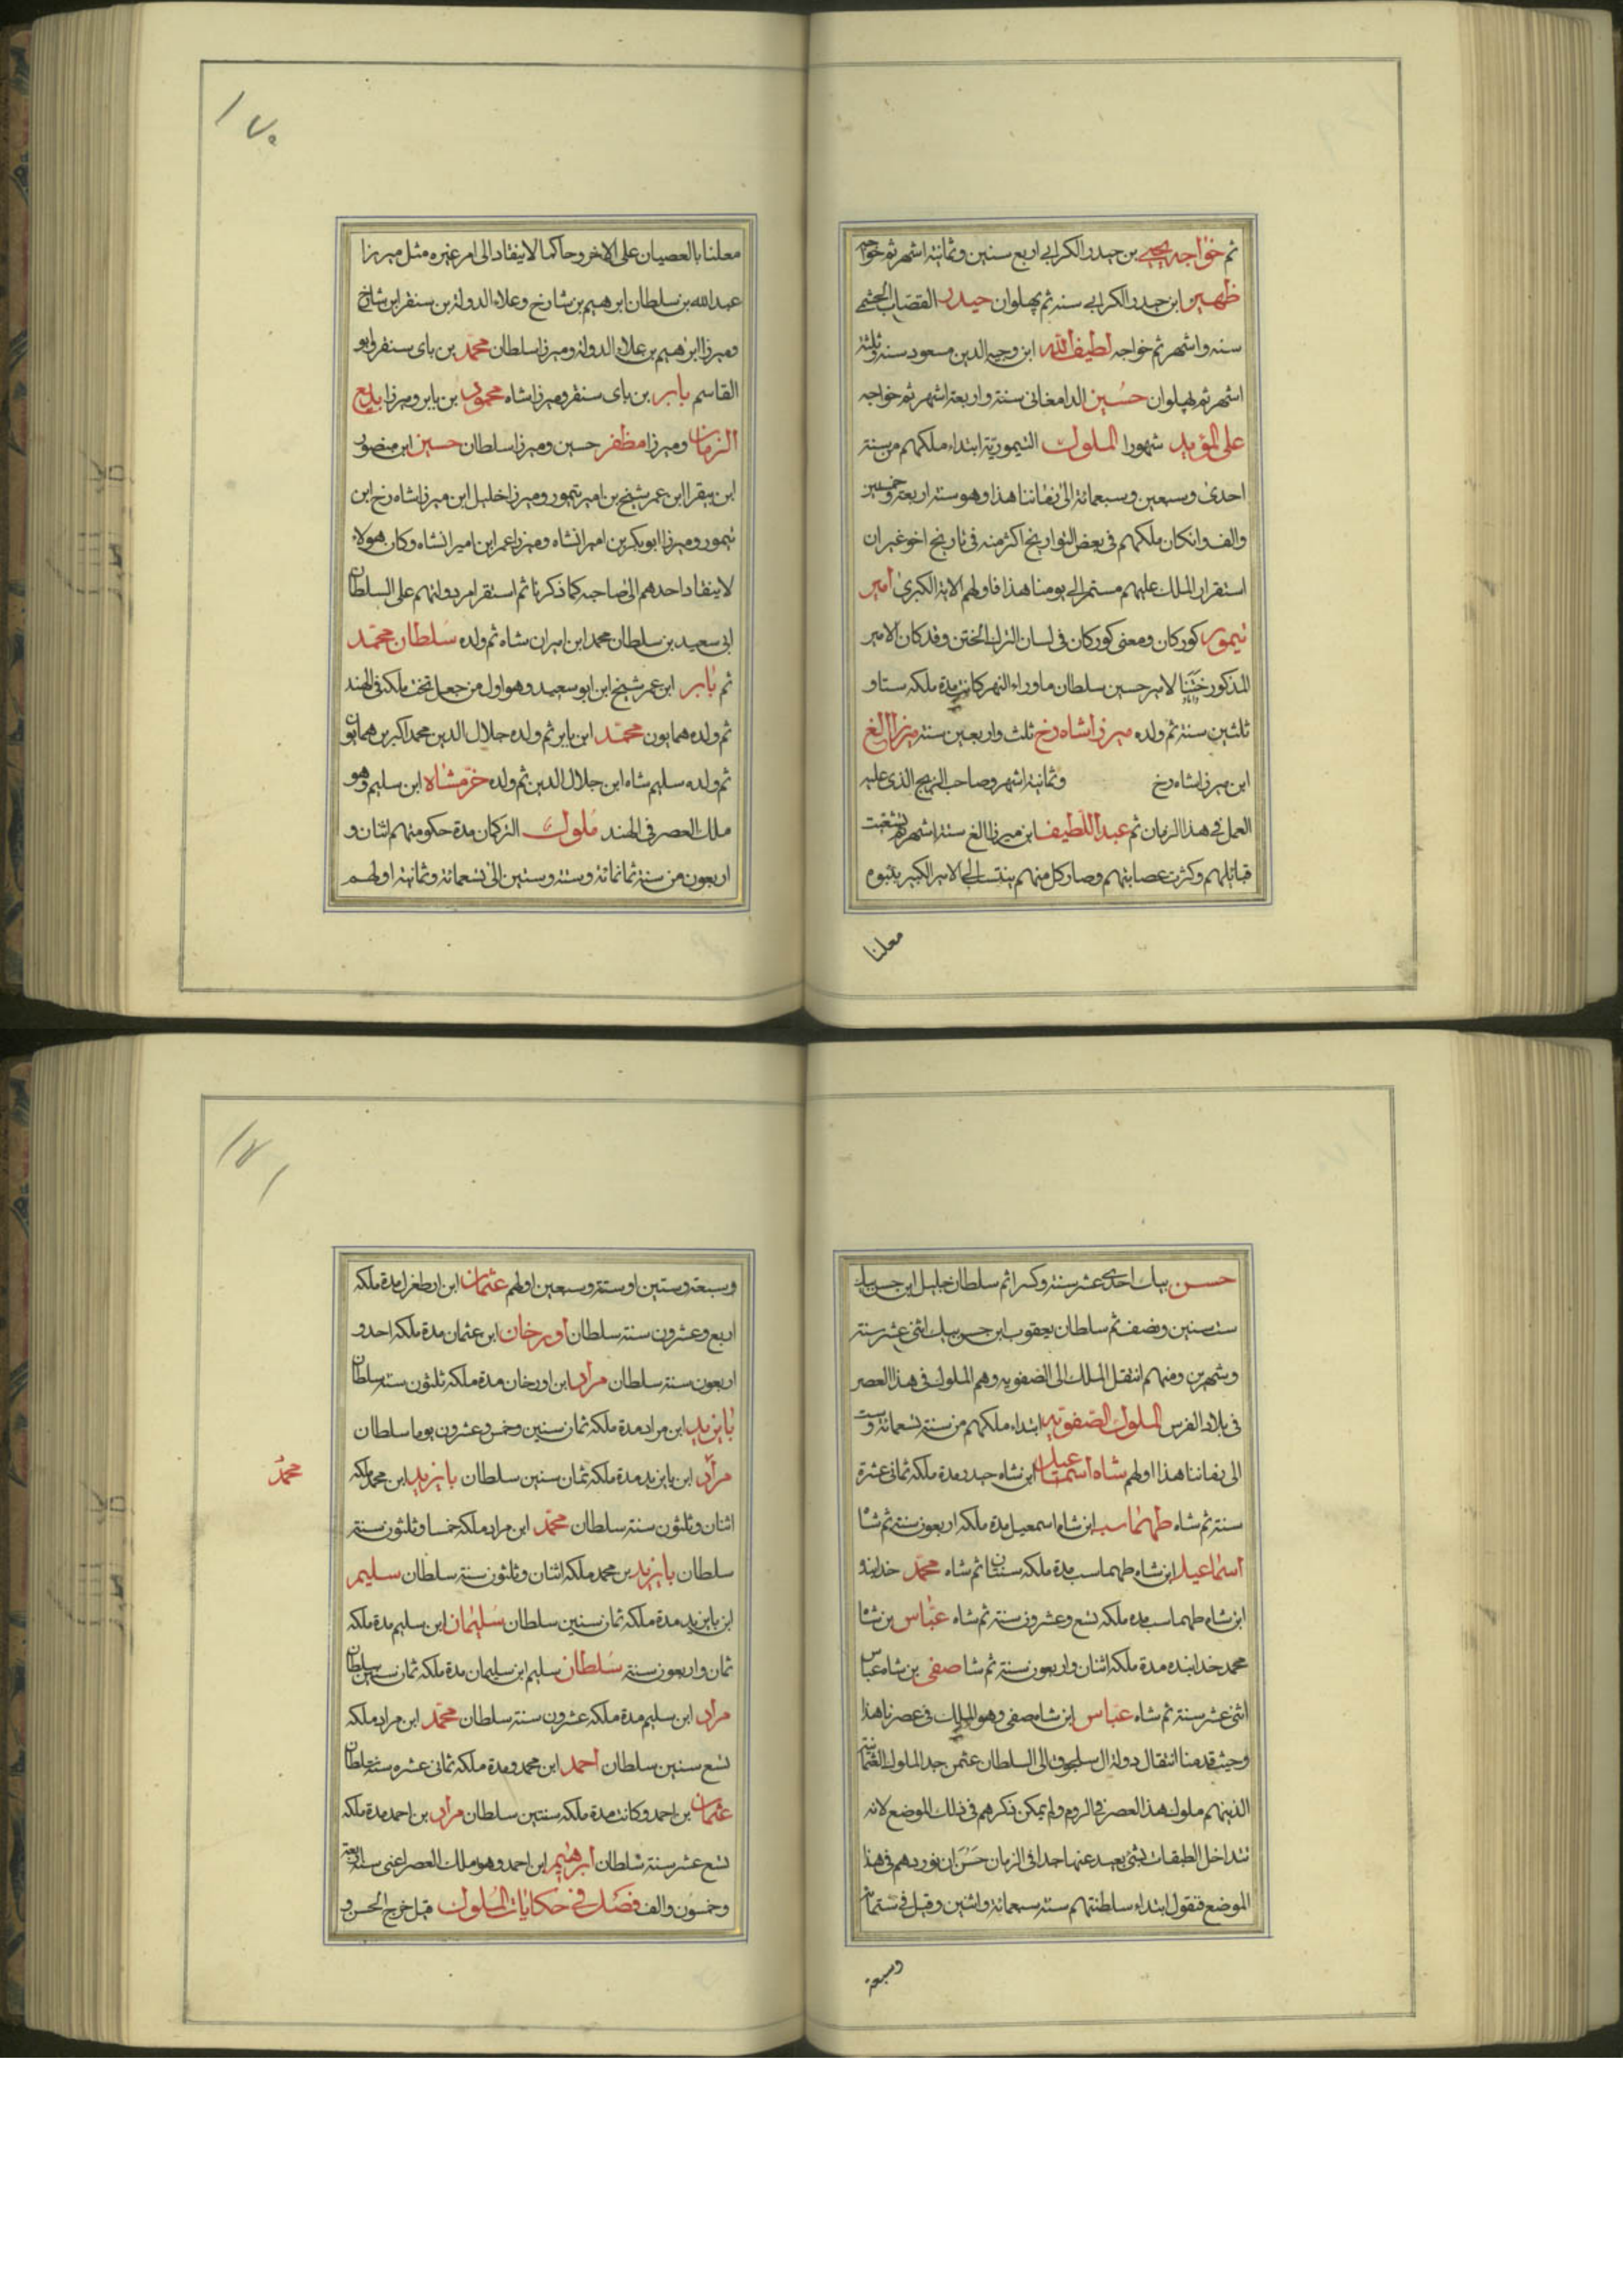 ثم خواجه يحيى بن حيدر الكرابي اربع سنين وثمانية اشهر ثم خواجه
ظهير ابن حيدر الكرابي سنه ثم پهلوان حيدر القصاب الجشمي
سنه واشهر ثم خواجه لطيف الله ابن وجيه الدين مسعود سنة وثلثة
اشهر ثم پهلوان حسين الدامغاني سنة واربعة اشهر ثم خواجه
على المؤيد شهورا الملوك التيمورية ابتداء ملكهم من سنة
احدى وسبعين وسبعمائة الى زماننا هذا وهو سنة اربعة وخمسين
والف وانكان ملكهم في بعض التواريخ اكثر منه في تاريخ اخر غير ان
استقرار الملك عليهم مستمر الى يومنا هذا فاولهم الاية الكبرى امير
تيمور كوركان ومعنى كوركان في لسان الترك الختن وقد كان الامير
المذكور ختنا لامير حسين سلطان ماوراء النهر كانت مدة ملكه ستا و
ثلثين سنة ثم ولده ميرزا شاه رخ ثلث واربعين سنة ميرزا الغ
ابن ميرزا شاه رخ وثمانية اشهر وصاحب الزيج الذى عليه
العمل في هذا الزمان ثم عبد اللطيف ابن ميرزا الغ ستة اشهر ثم تشعبت
قبائلهم وكثرت عصابتهم وصار كل منهم ينتسب الى الامير الكبير بنبوة
معلنا
١٧٠
معلنا بالعصيان على الاخر وحاكما لاينقاد الى امر غيره مثل ميرزا
عبد الله بن سلطان ابرهيم بن شارخ وعلاء الدولة بن سنقر ابن شارخ
وميرزا ابرهيم بن علاء الدولة وميرزا سلطان محمد بن باى سنقر وابو
القاسم بابر بن باى سنقر وميرزا شاه محمود بن بابر وميرزا بديع
الزمان وميرزا مظفر حسين وميرزا سلطان حسين ابن منصور
ابن بيقرا ابن عمر شيخ بن امير تيمور وميرزا خليل ابن ميرزا شاه رخ ابن
تيمور وميرزا ابوبكر بن اميرانشاه وميرزا عمر ابن اميرانشاه وكان هولاء
لاينقاد احدهم الى صاحبه كما ذكرنا ثم استقر امر دولتهم على السلطان
ابي سعيد بن سلطان محمد ابن اميران شاه ثم ولده سلطان محمد
ثم بابر ابن عمر شيخ ابن ابوسعيد وهو اول من جعل تخت ملكه في الهند
ثم ولده همايون محمد ابن بابر ثم ولده جلال الدين محمد اكبر بن همايون
ثم ولده سليم شاه ابن جلال الدين ثم ولده خرمشاه ابن سليم وهو
ملك العصر في الهند ملوك التركمان مدة حكومتهم اثنان و
اربعون من سنة ثمانمائة وستة وستين الى تسعمائة وثمانية اولهم
حسن بيك احدى عشر سنة وكسرا ثم سلطان خليل ابن حسن بيك
ست سنين ونصف ثم سلطان يعقوب ابن حسن بيك اثنى عشر سنة
وشهرين ومنهم انتقل الملك الى الصفويه وهم الملوك في هذا العصر
في بلاد الفرس الملوك الصفويه ابتداء ملكهم من سنة تسعمائة وست
الى زماننا هذا اولهم شاه اسمعيل ابن شاه حيدر مدة ملكه ثمانى عشرة
سنة ثم شاه طهماسب ابن شاه اسمعيل مدة ملكه اربعون سنة ثم شاه
اسماعيل ابن شاه طهماسب مدة ملكه سنتان ثم شاه محمد خدابنده
ابن شاه طهماسب مدة ملكه تسع وعشرون سنة ثم شاه عباس بن شاه
محمد خدابنده مدة ملكه اثنان واربعون سنة ثم شاه صفى بن شاه عباس
اثنى عشر سنة ثم شاه عباس ابن شاه صفى وهو الملك في عصرنا هذا
وحيث قدمنا انتقال دولة ال سلجوق الى السلطان عثمن جد الملوك العثمانية
الذين هم ملوك هذا العصر في الروم ولم يمكن ذكرهم في ذلك الموضع لانه
تتداخل الطبقات بشئ بعيد عنها جدا في الزمان حسن ان نوردهم في هذا
الموضع فنقول ابتداء سلطنتهم سنة سبعمائة واثنين وقيل في ستمائة
وسبعة
١٧١
وسبعة وستين او ستة وسبعين اولهم عثمان ابن ارطغرل مدة ملكه
اربع وعشرون سنة سلطان اورخان ابن عثمان مدة ملكه احد و
اربعون سنة سلطان مراد ابن اورخان مدة ملكه ثلثون سنة سلطان
بايزيد ابن مراد مدة ملكه ثمان سنين وخمس وعشرون يوما سلطان
مراد ابن بايزيد مدة ملكه ثمان سنين سلطان بايزيد ابن محمد ملكه
محمد
اثنان وثلثون سنة سلطان محمد ابن مراد ملكه خمسا وثلثون سنة
سلطان بايزيد بن محمد ملكه اثنان وثلثون سنة سلطان سليم
ابن بايزيد مدة ملكه ثمان سنين سلطان سليمان ابن سليم مدة ملكه
ثمان واربعون سنة سلطان سليم ابن سليمان مدة ملكه ثمان سنين سلطان
مراد ابن سليم مدة ملكه عشرون سنة سلطان محمد ابن مراد ملكه
تسع سنين سلطان احمد ابن محمد ومدة ملكه ثمانى عشره سنة سلطان
عثمان بن احمد وكانت مدة ملكه سنتين سلطان مراد بن احمد مدة ملكه
تسع عشر سنة سلطان ابرهيم ابن احمد وهو ملك العصر اعنى سنة اربعة
وخمسون والف فصل في حكايات الملوك قيل خرج الحسن و